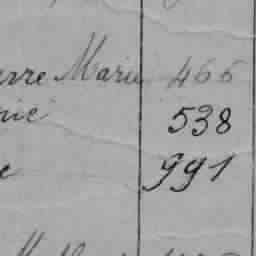 erre Marie 466
rie 538
e 991